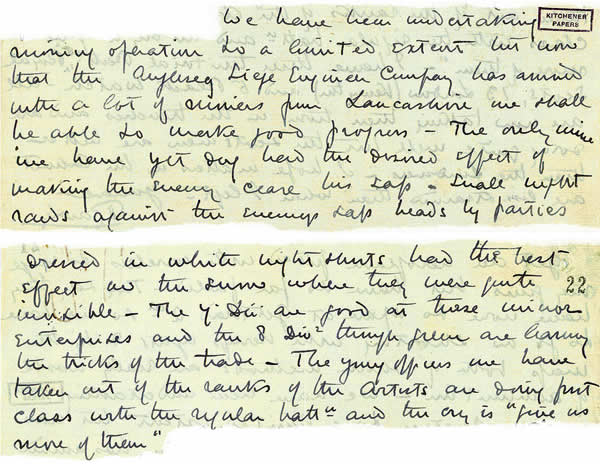 We have been undertaking
KITCHENER
PAPERS
mining operation to a limited extent but now
that the Anglesey Siege Engineer Company has arrived
with a lot of miners from Lancashire we shall
be able to make good progress – The only mine
we have yet dug had the desired effect of
making the enemy cease his sap – Small night
raids against the enemys sap heads by parties
dressed in white night shirts had the best
effect in the snow where they were quite 22
invisible – The 7 Div are good at these minor
enterprises and the 8 Divn though green are learning
the tricks of the trade – The young officers we have
taken out of the ranks of the Artists are doing first
class with the regular battns and the cry is "give us
more of them"